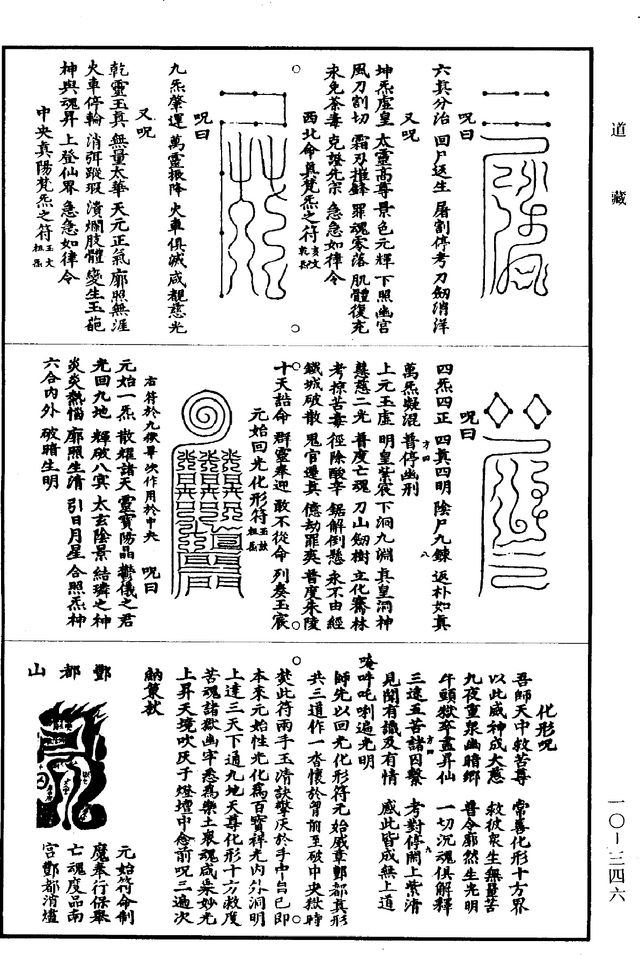 道藏
咒曰
六真分治 回尸返生 屠割停考 刀劒消洋
又咒
坤炁虛皇 太靈高尊 景色元輝 下照幽官
風刀割切 霜刃摧鋒 罪魂零落 肌體復充
永免荼毒 克證先宗 急急如律令
西北命真梵炁之符
咒曰
九炁肇運 萬靈振降 火車俱滅 咸覩慈光
又咒
乾靈玉真 無量太華 天元正氣 廓照無涯
火車停輪 消弭蹤瑕 潰爛肢體 變生玉葩
神與魂昇 上登仙界 急急如律令
中央真陽梵炁之符
咒曰
四炁四正 四真四明 陰尸九鍊 返朴如真
萬炁凝混 普停幽刑
上元玉虛 明皇紫宸 下洞九淵 真皇洞神
慧慈二光 普度亡魂 刀山劒樹 立化騫林
考掠苦毒 徑除酸辛 鋸解倒懸 永不由經
鐵城破散 鬼官遷真 億劫罪爽 普度朱陵
十天詰命 群靈奉迎 敢不從命 列奏玉宸
元始回光化形符
右符於九獄畢次作用於中央 咒曰
元始一炁 散耀諸天 靈寶陽晶 鬱儀之君
光回九地 輝破八冥 太玄陰景 結璘之神
炎炎熱惱 廓照生清 引日月星 合照炁神
六合內外 破暗生明
化形咒
吾師天中救苦尊 常善化形十方界
以此威神成大慈 救彼衆生無量苦
九夜重泉幽暗鄉 普令廓然生光明
牛頭獄卒盡昇仙 一切沉魂俱解釋
三途五苦諸因繫 考對停閞上紫清
見聞有識及有情 感此皆成無上道
唵吽吒唎遏光明
師先以回光化形符元始威章酆都真形
共三道作一沓懷於胷前至破中央獄時
焚此符兩手玉清訣擎灰於手中自己即
本來元始性光化爲百寶祥光內外洞明
上達三天下通九地天尊化形十方救度
苦魂諸獄幽牢悉爲樂土衆魂咸乘妙光
上昇天境吹灰于燈壇中念前咒三遍次
納策杖
酆都山
元始符命制
魔奉行保舉
亡魂度品南
宮酆都消爐
一〇—三四六